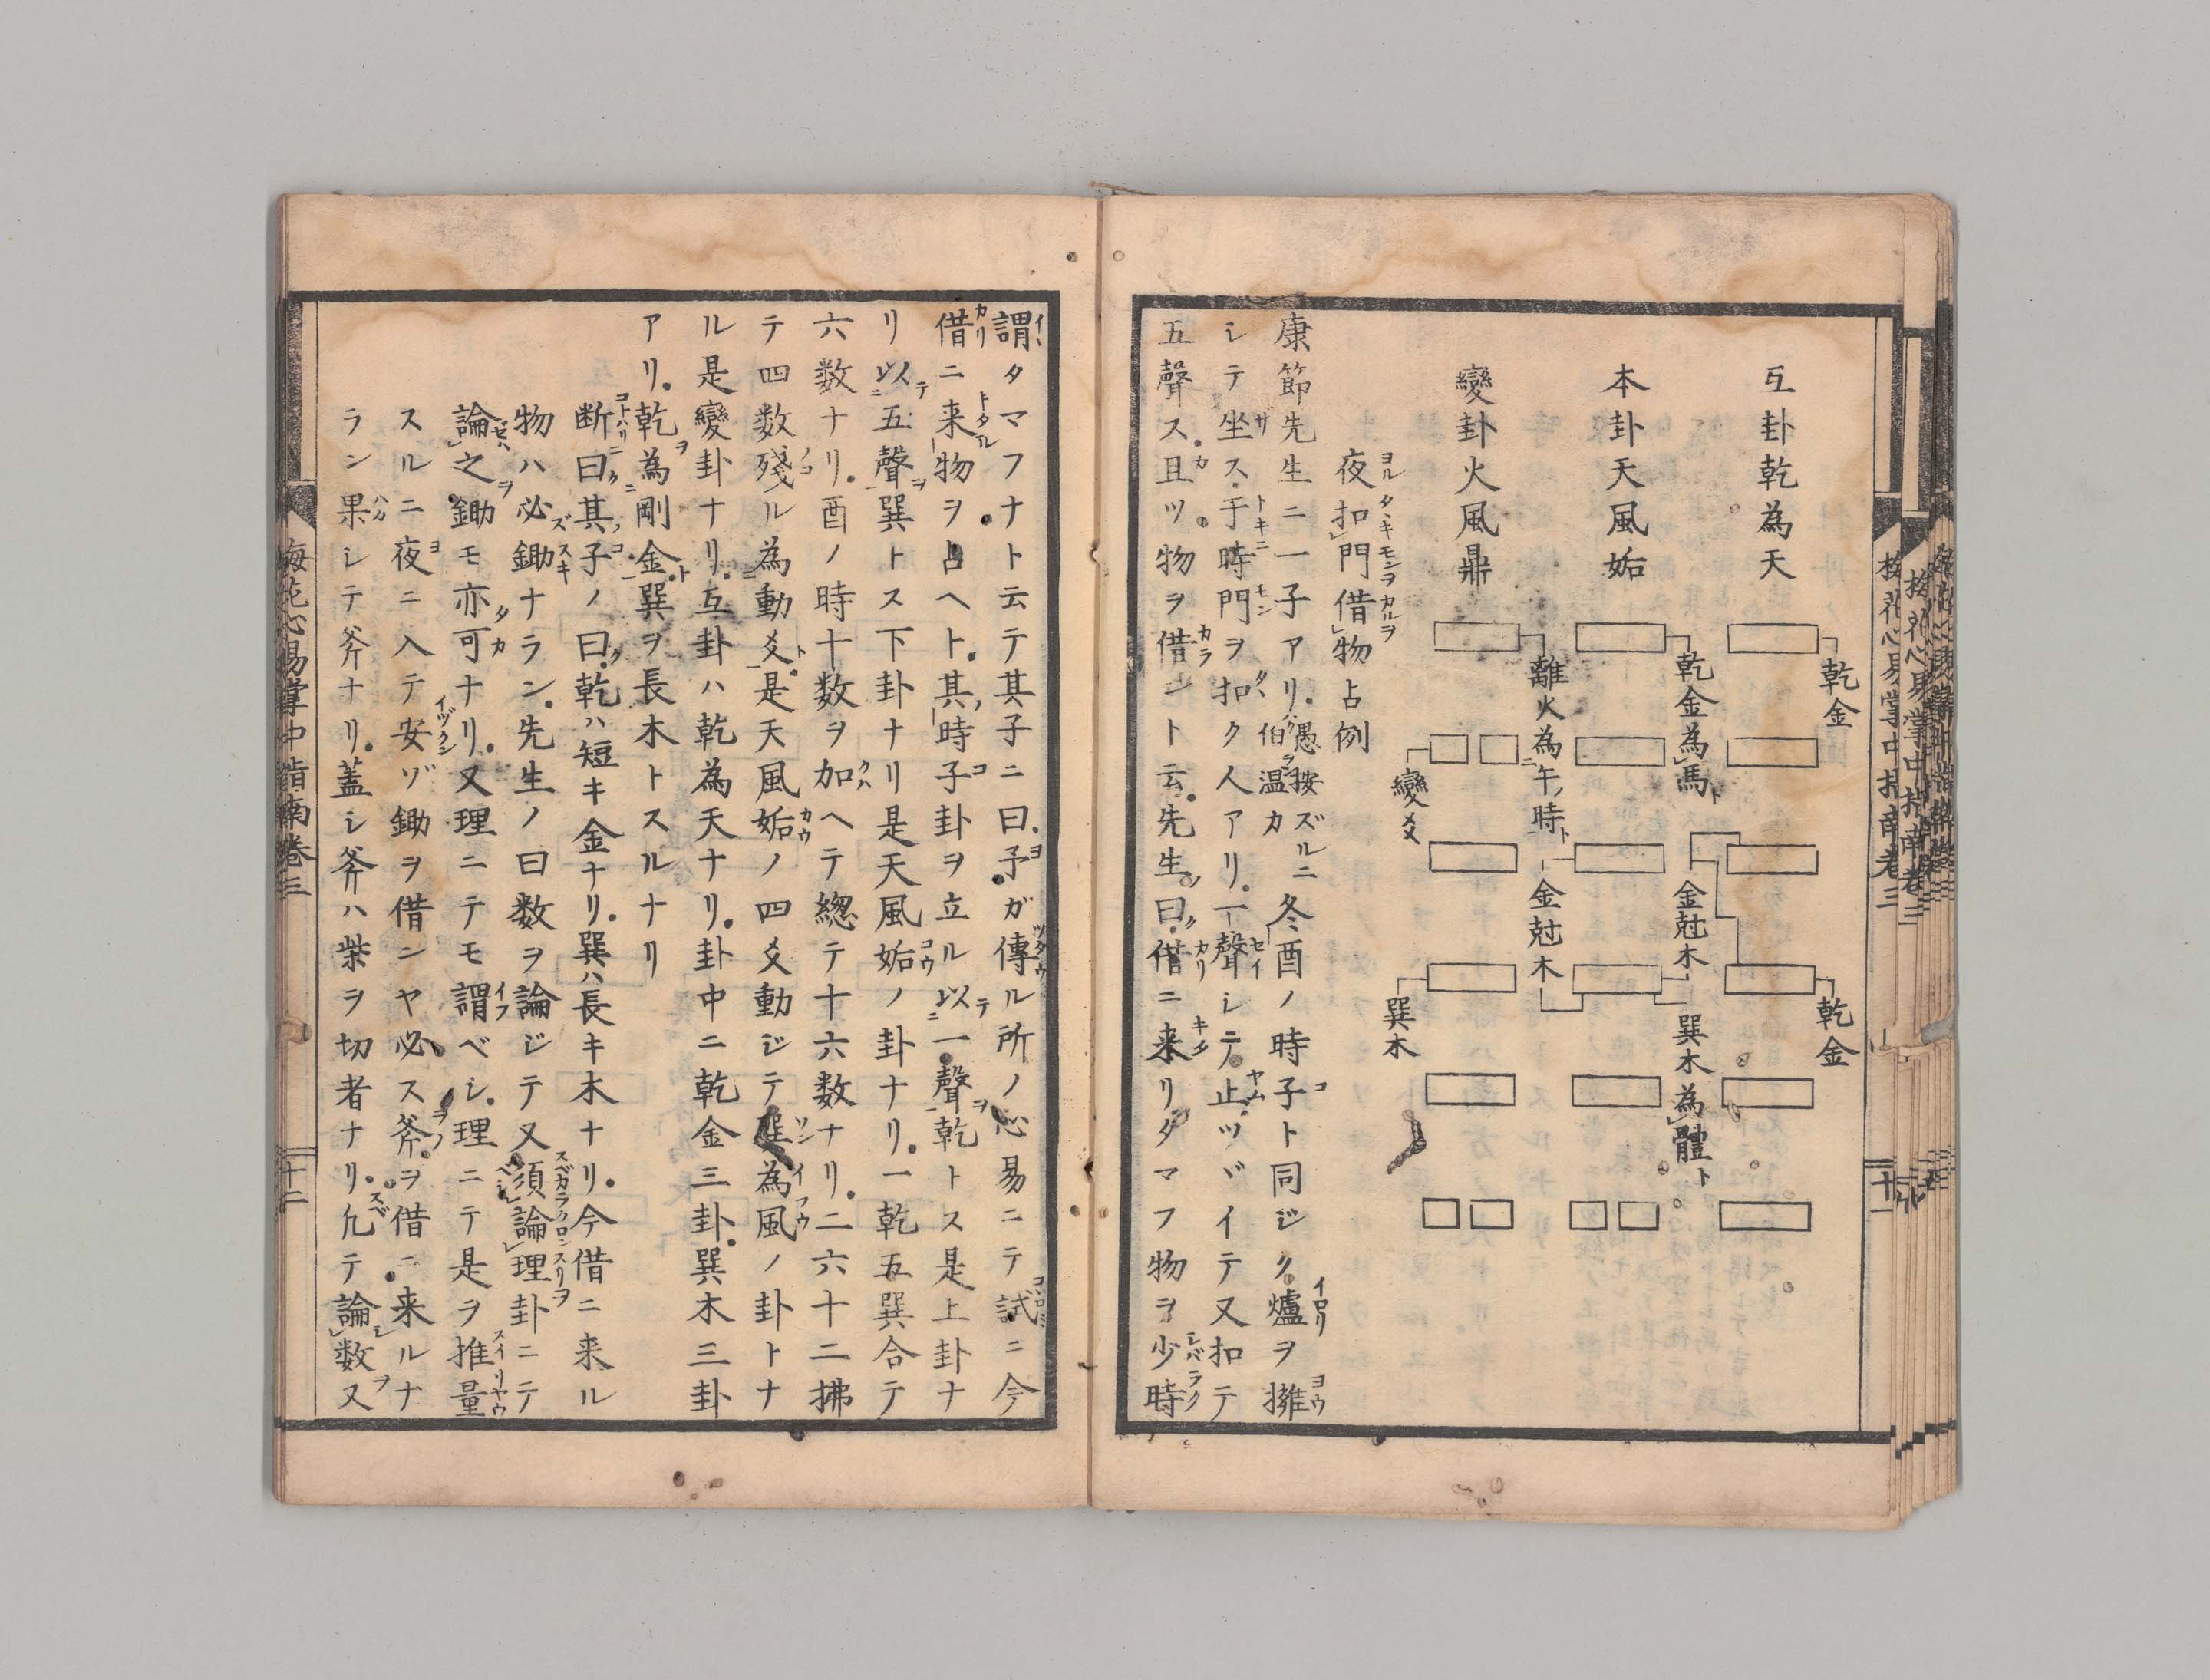 互卦乾為天
乾金
乾金
本卦天風姤
乾金為馬ト
金尅木
巽木為體ト
變卦火風鼎
離火為午ノ時ト
金尅木
變爻
巽木
夜扣門借物占例
康節先生ニ一子アリ愚按ズルニ伯温カ冬酉ノ時子ト同ジク爐ヲ擁
シテ坐ス于時門ヲ扣ク人アリ一聲シテ止ツヾイテ又扣テ
五聲ス且ツ物ヲ借ント云先生曰借ニ来リタマフ物ヲ少時
謂タマフナト云テ其子ニ曰予ガ傳ル所ノ心易ニテ試ニ今
借ニ来物ヲ占ヘト其時子卦ヲ立ル以一聲乾トス是上卦ナ
リ以五聲巽トス下卦ナリ是天風姤ノ卦ナリ一乾五巽合テ
六数ナリ酉ノ時十数ヲ加ヘテ總テ十六数ナリ二六十二拂
テ四数殘ル為動爻是天風姤ノ四爻動ジテ巽為風ノ卦トナ
ル是變卦ナリ互卦ハ乾為天ナリ卦中ニ乾金三卦巽木三卦
アリ乾為剛金巽ヲ長木トスルナリ
断曰其子ノ曰乾ハ短キ金ナリ巽ハ長キ木ナリ今借ニ来ル
物ハ必鋤ナラン先生ノ曰数ヲ論ジテ又須論理卦ニテ
論之鋤モ亦可ナリ又理ニテモ謂ベシ理ニテ是ヲ推量
スルニ夜ニ入テ安ゾ鋤ヲ借ンヤ必ス斧ヲ借ニ来ルナ
ラン果シテ斧ナリ蓋シ斧ハ柴ヲ切者ナリ凢テ論数又
梅花心易掌中指南巻三
十二